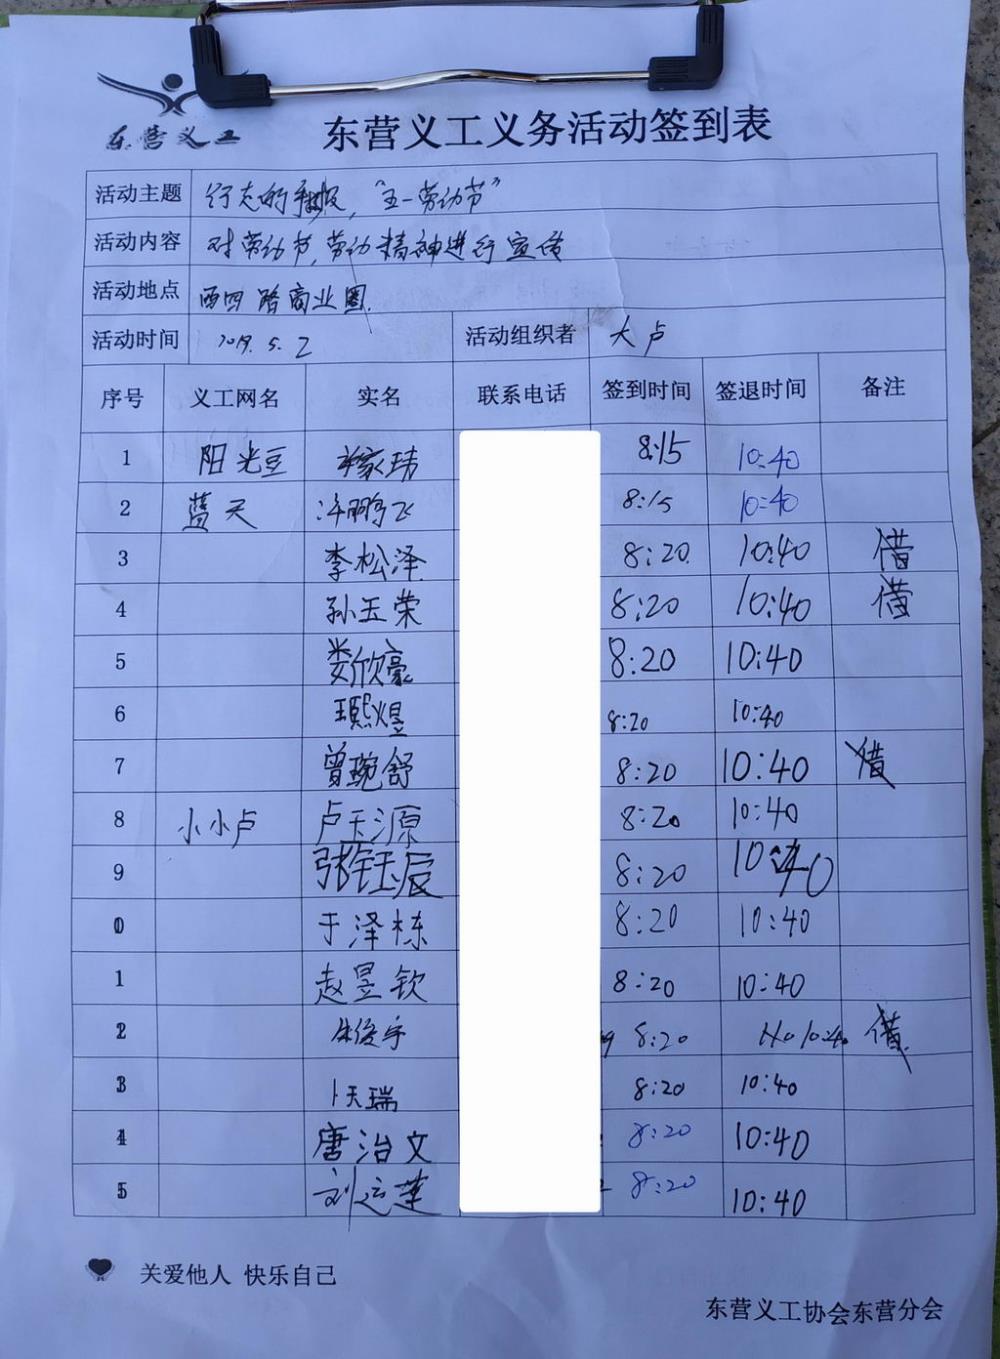 东营义工
东营义工义务活动签到表
活动主题 行走的手抄报，“五一劳动节”
活动内容 对劳动节，劳动精神进行宣传
活动地点 西四路商业圈
活动时间 2019.5.2 活动组织者 大卢
序号 义工网名 实名 联系电话 签到时间 签退时间 备注
1 阳光豆 8:15 10:40
2 蓝天 许鹏飞 8:15 10:40
3 李松泽 8:20 10:40 借
4 孙玉荣 8:20 10:40 借
5 娄欣豪 8:20 10:40
6 王熙煜 8:20 10:40
7 曾琬舒 8:20 10:40
8 小小卢 卢天源 8:20 10:40
9 张钰辰 8:20 10:40
10 于泽栋 8:20 10:40
1 赵昱钦 8:20 10:40
2 朱俊宇 8:20 10:40
3 卜天瑞 8:20 10:40
4 唐治文 8:20 10:40
5 刘运莲 8:20 10:40
关爱他人 快乐自己
东营义工协会东营分会